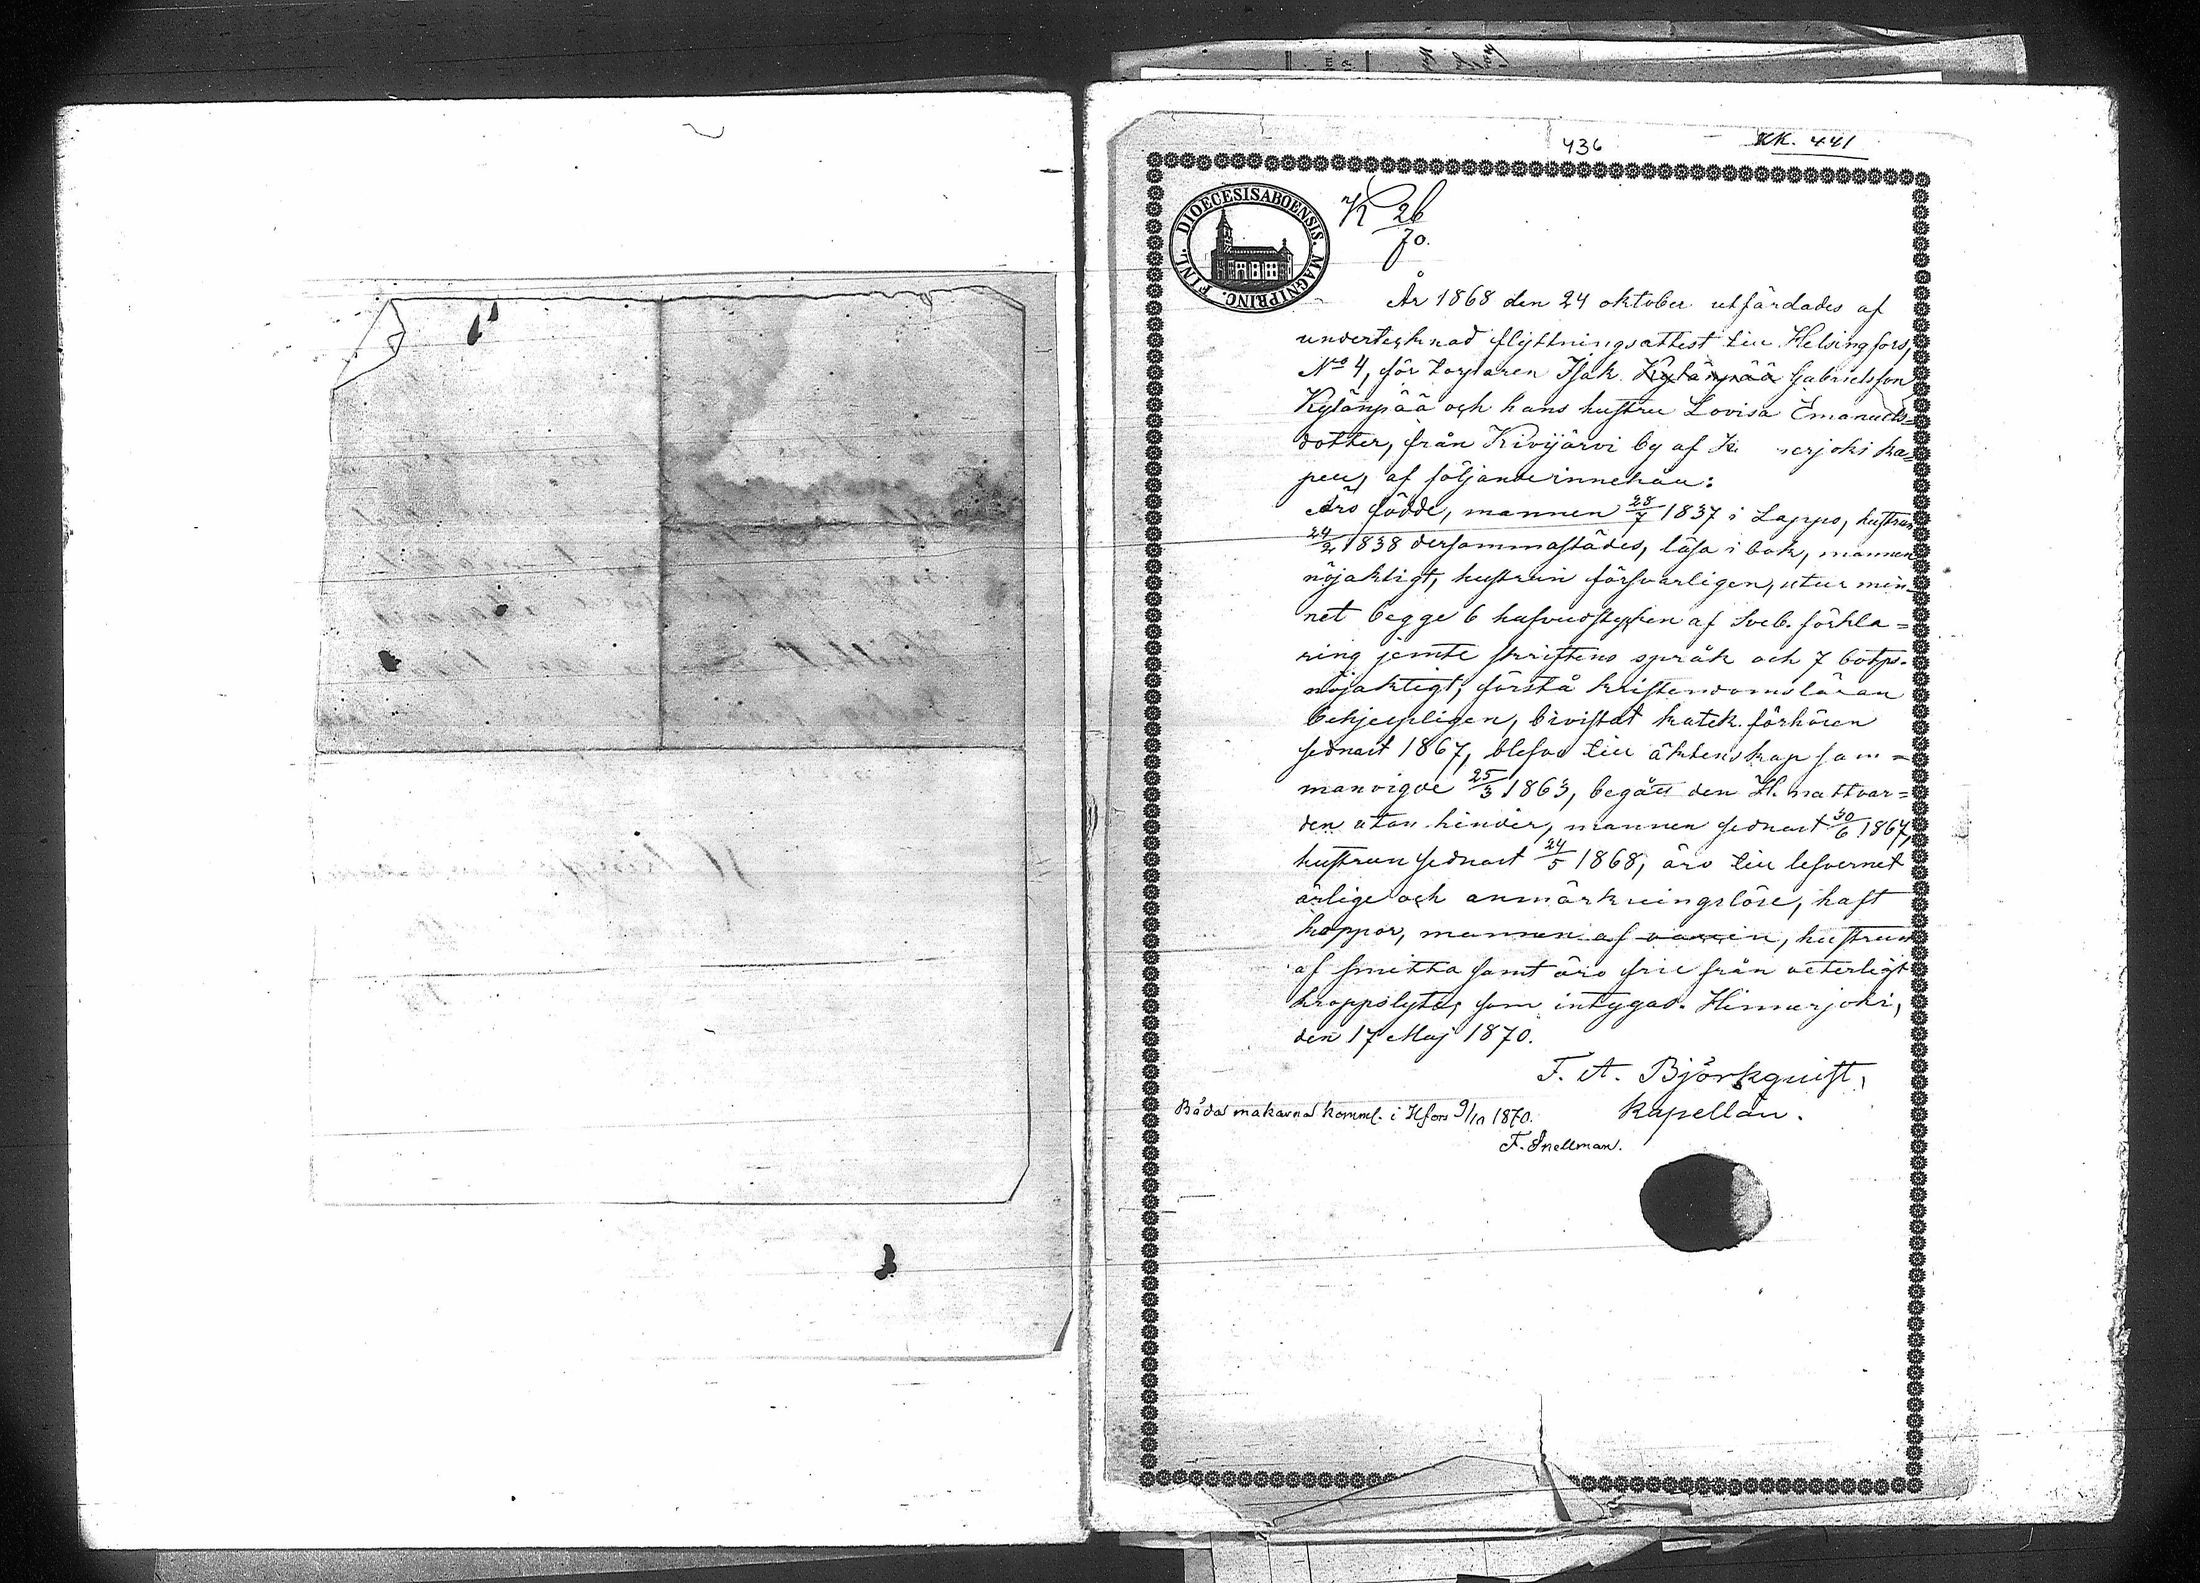 436
KK. 441
DIOECESIS ABOENSIS. MAGNI PRINC. FINL.
K 26/70.
År 1868 den 24 oktober utfärdades af
undertecknad flyttningsattest till Helsingfors,
No 4, för torparen Isak Kylänpää Gabrielsson
Kylänpää och hans hustru Lovisa Emanuels-
dotter, från Kivijärvi by af erjoki ka-
pell, af följande innehåll:
Äro födde, mannen 28/7 1837 i Lappo, hustrun
24/2 1838 dersammastädes, läsa i bok, mannen
nöjaktigt, hustrun försvarligen, utur min-
net begge 6 hufvudstycken af Sveb. förkla=
ring jemte skriftens språk och 7 botps.
nöjaktigt, förstå kristendomsläran
behjelpligen, bivistat katek. förhören
sednast 1867, blefvo till äktenskap sam=
manvigde 25/3 1863, begått den H. nattvar=
den utan hinder, mannen sednast 30/6 1867,
hustrun sednast 24/5 1868, äro till lefvernet
ärlige och anmärkningslöse, haft
koppor, mannen af vaccin, hustrun
af smitta samt äro frie från veterligt
kroppslyte, som intygas. Himmerjoki,
den 17 Maj 1870.
F. A. Björkquist,
Kapellan.
Båda makarna komml. i Hfors 9/10 1870.
F. Snellman.